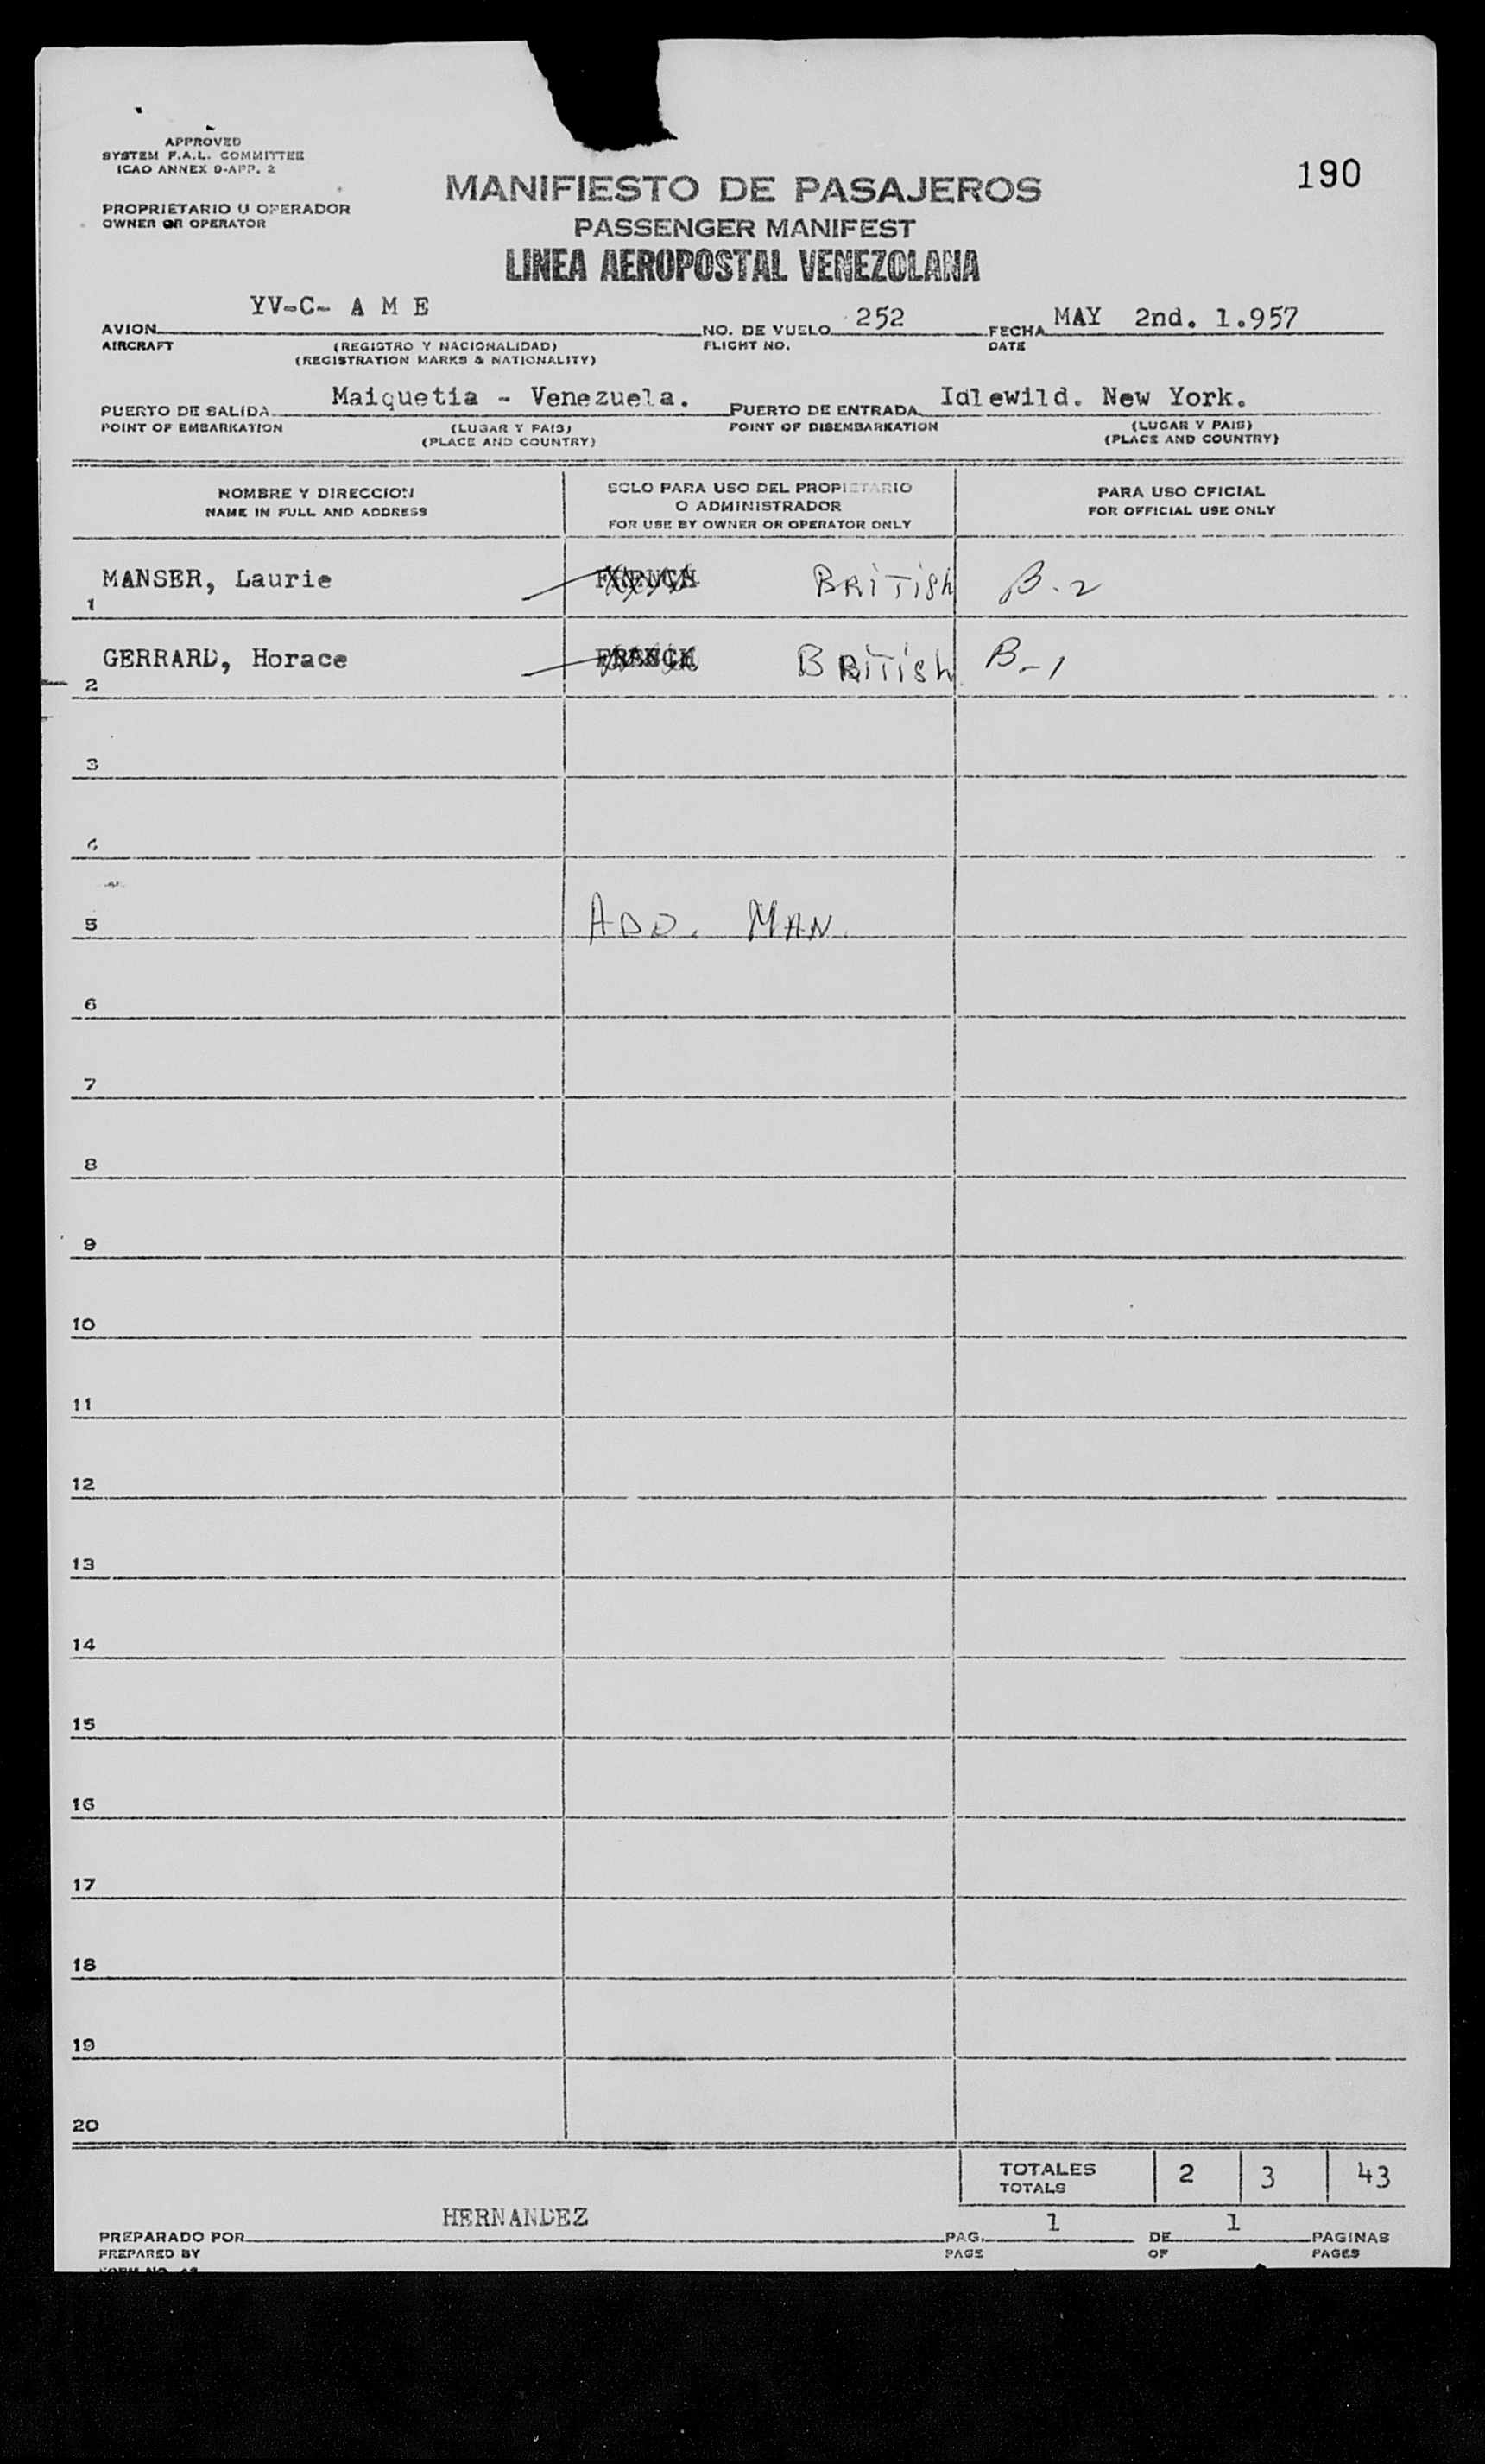 APPROVED
SYSTEM F.A.L. COMMITTEE
ICAO ANNEX 9-APP. 2
190
PROPRIETARIO U OPERADOR
OWNER OR OPERATOR
MANIFIESTO DE PASAJEROS
PASSENGER MANIFEST
LINEA AEROPOSTAL VENEZOLANA
AVION YV-C- A M E NO. DE VUELO 252 FECHA MAY 2nd. 1.957
AIRCRAFT (REGISTRO Y NACIONALIDAD) FLIGHT NO. DATE
(REGISTRATION MARKS & NATIONALITY)
PUERTO DE SALIDA Maiquetia - Venezuela. PUERTO DE ENTRADA Idlewild. New York.
POINT OF EMBARKATION (LUGAR Y PAIS) POINT OF DISEMBARKATION (LUGAR Y PAIS)
(PLACE AND COUNTRY) (PLACE AND COUNTRY)
NOMBRE Y DIRECCION SOLO PARA USO DEL PROPIETARIO PARA USO OFICIAL
NAME IN FULL AND ADDRESS O ADMINISTRADOR FOR OFFICIAL USE ONLY
FOR USE BY OWNER OR OPERATOR ONLY
MANSER, Laurie FRENCH BRITISH B-2
1
GERRARD, Horace BRITISH B-1
2
3
4
5 ADD. MAN.
6
7
8
9
10
11
12
13
14
15
16
17
18
19
20
TOTALES 2 3 43
TOTALS
PREPARADO POR HERNANDEZ PAG. 1 DE 1 PAGINAS
PREPARED BY PAGE OF PAGES